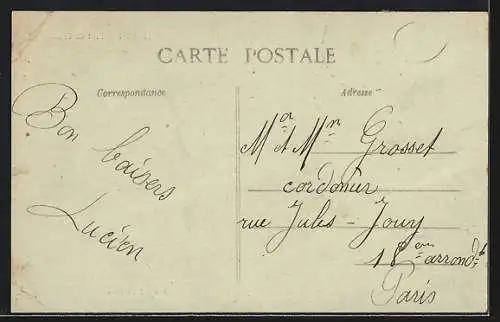 CARTE POSTALE
Correspondance
Adresse
Bon baisers
Lucien
Ma et Mr Grosset
cordonier
rue Jules-Jouy
18eme arrondt
Paris